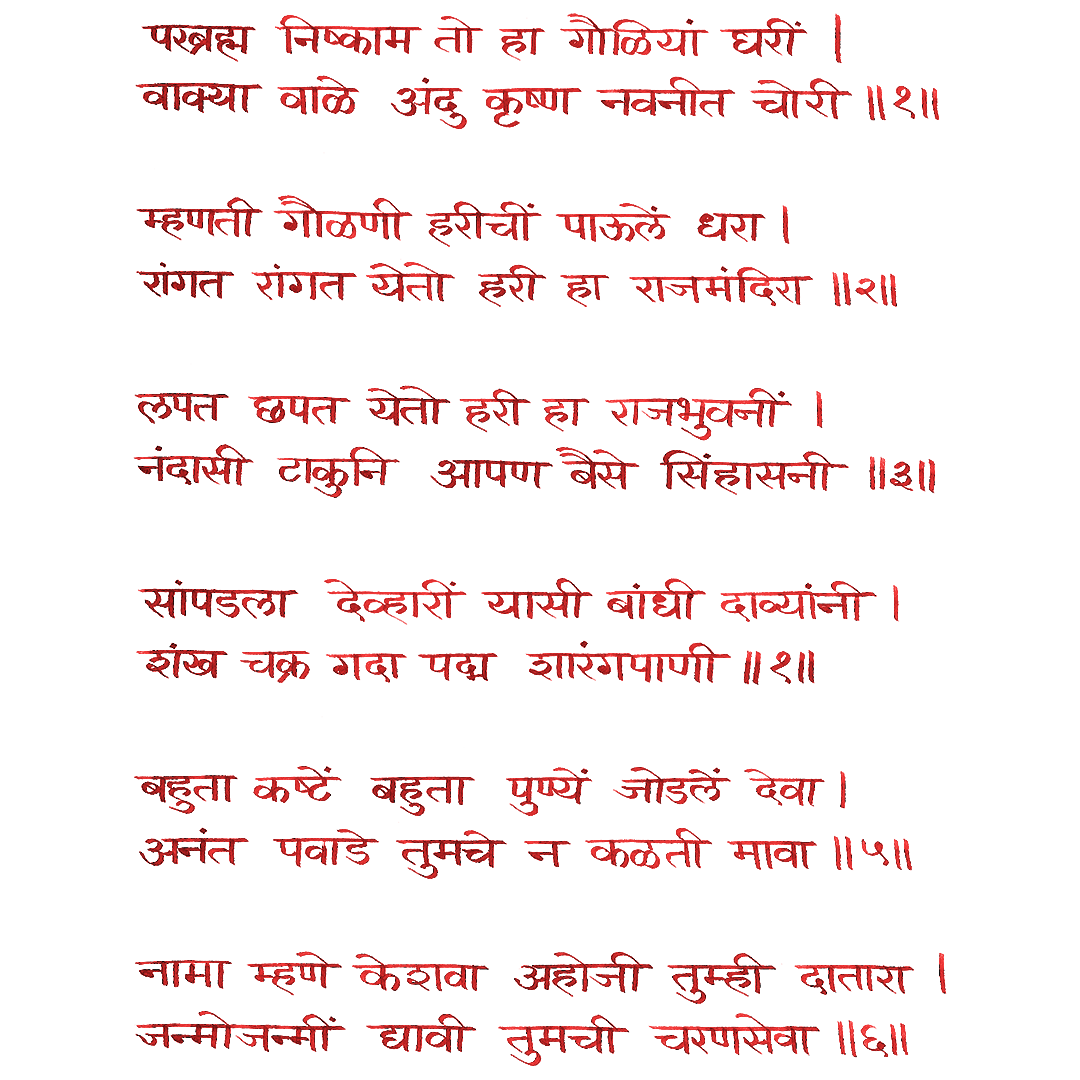 परब्रह्म निष्काम तो हा गौळियां घरीं |
वाक्या वाळे अंदु कृष्ण नवनीत चोरी ||१||
म्हणती गौळणी हरीचीं पाऊलें धरा |
रांगत रांगत येतो हरी हा राजमंदिरा ||२||
लपत छपत येतो हरी हा राजभुवनीं |
नंदासी टाकुनि आपण बैसे सिंहासनी ||३||
सांपडला देव्हारीं यासी बांधी दाव्यांनी |
शंख चक्र गदा पद्म शारंगपाणी ||१||
बहुता कष्टें बहुता पुण्यें जोडलें देवा |
अनंत पवाडे तुमचे न कळती मावा ||५||
नामा म्हणे केशवा अहोजी तुम्ही दातारा |
जन्मोजन्मीं द्यावी तुमची चरणसेवा ||६||